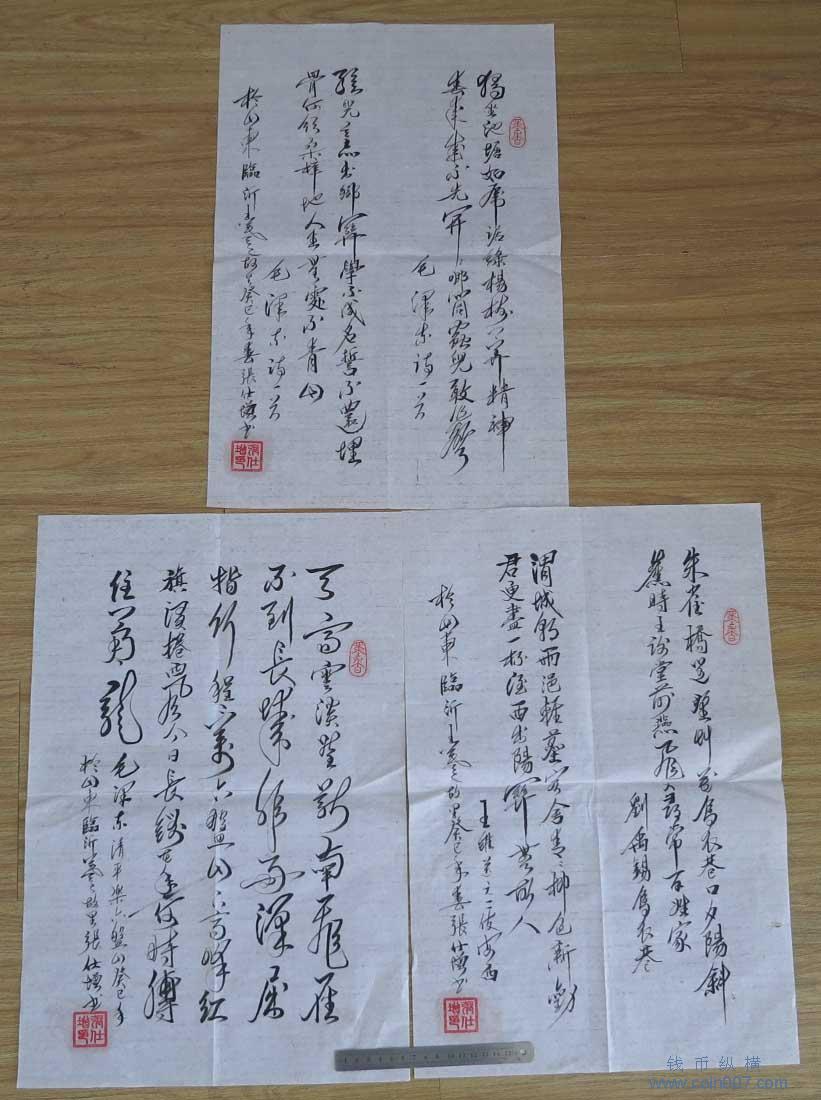 墨香
獨坐池塘如虎踞綠楊樹下養精神
春來我不先開口哪箇蟲兒敢作聲
毛澤東詩一首
孩兒立志出鄉關學不成名誓不還埋
骨何須桑梓地人生無處不青山
毛澤東詩一首
於山東臨沂王羲之故里癸巳年春張仕增書
張仕增印
墨香
朱雀橋邊野草花烏衣巷口夕陽斜
舊時王謝堂前燕飛入尋常百姓家
劉禹錫烏衣巷
渭城朝雨浥輕塵客舍青青柳色新勸
君更盡一杯酒西出陽關無故人
王維送元二使安西
於山東臨沂王羲之故里癸巳年春張仕增書
張仕增印
墨香
天高雲淡望斷南飛雁
不到長城非好漢屈
指行程二萬六盤山上高峰紅
旗漫捲西風今日長纓在手何時縛
住蒼龍
毛澤東清平樂六盤山癸巳年
於山東臨沂羲之故里張仕增書
張仕增印
钱币纵横
www.coin007.com